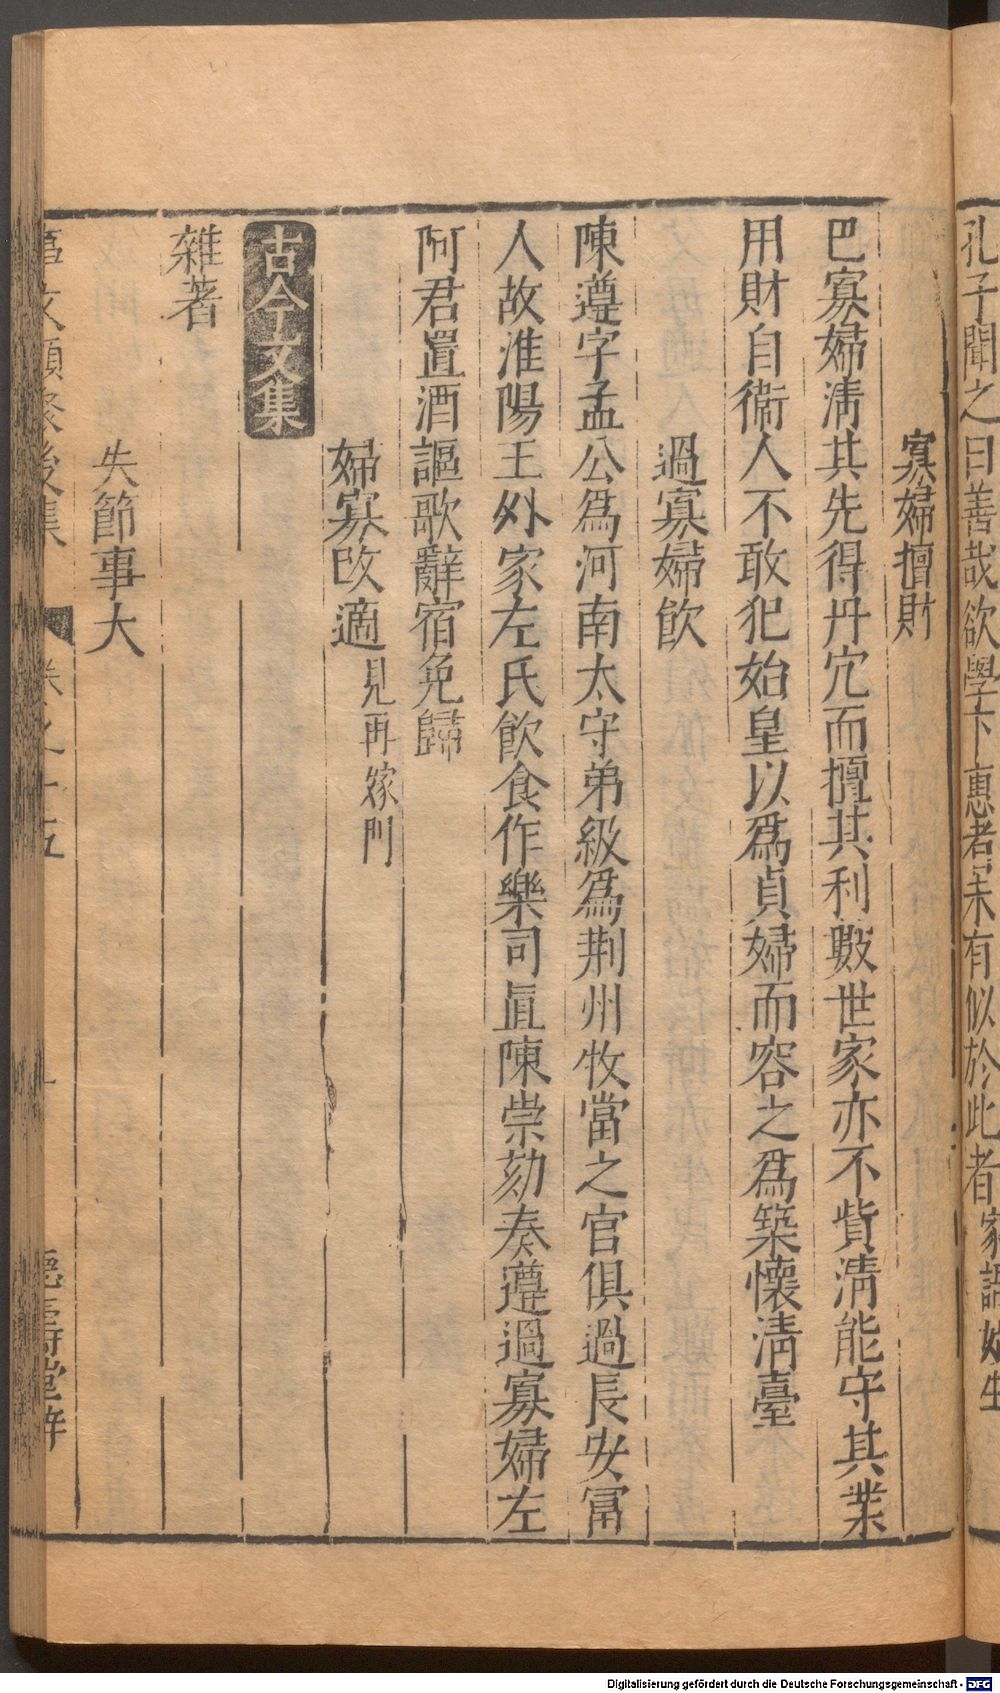 孔子聞之曰善哉欲學下惠者未有似於此者家語妣生
寡婦擅財
巴寡婦淸其先得丹穴而擅其利數世家亦不貲淸能守其業
用財自衞人不敢犯始皇以爲貞婦而容之爲築懷淸臺
過寡婦飮
陳遵字孟公爲河南太守弟級爲荆州牧當之官俱過長安富
人故淮陽王外家左氏飮食作樂司直陳崇劾奏遵過寡婦左
阿君置酒謳歌辭宿免歸
婦寡改適見再嫁門
古今文集
雜著
失節事大
事文類聚後集 卷之十五 德壽堂梓
Digitalisierung gefördert durch die Deutsche Forschungsgemeinschaft - DFG